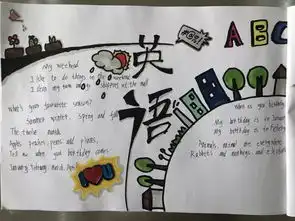 My weekend
I like to do things on the weekend
I clean my room and shopped at the mall
What's your favourite season?
Summer winter. Spring and fall
The twelve month
Apples, peaches, pears and plums,
Tell me when your birthday comes.
January, February, March, April
I ❤ U
英语
ABC
When is you birthday
My birthday is in January
My birthday is in February
Animals, animal are everywhere
Rabbits and monkeys and